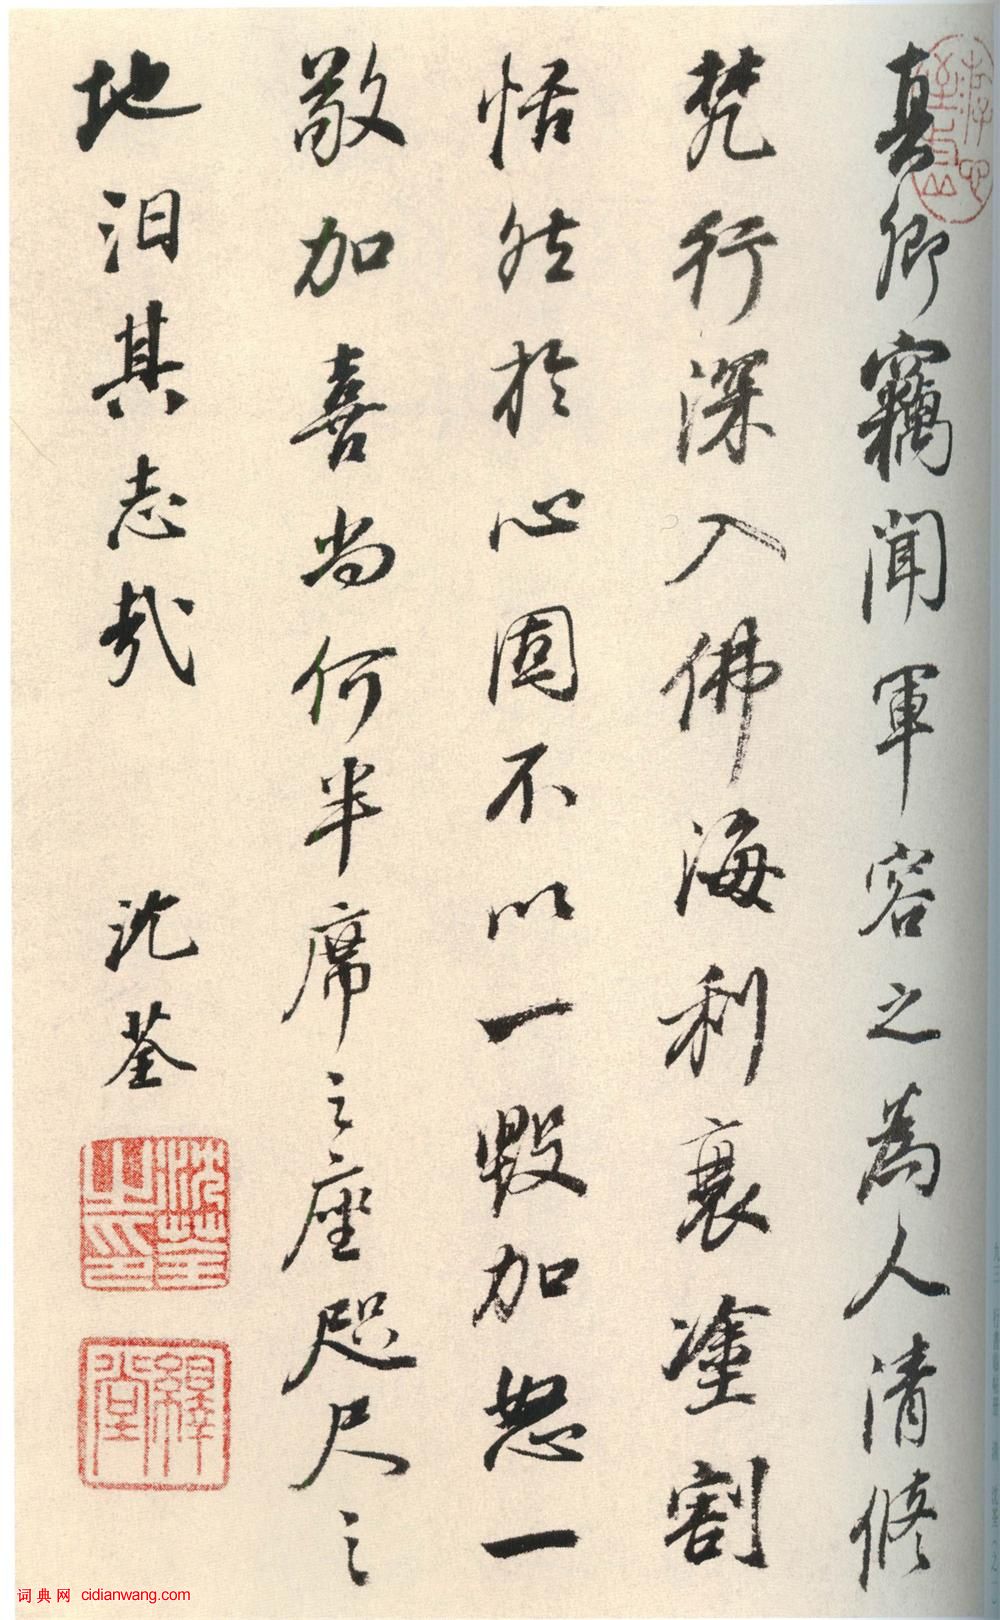 真卿竊聞軍容之為人清修
梵行深入佛海利衰塗割
恬然於心固不以一毀加怒一
敬加喜尚何半席之座咫尺之
地汩其志哉
沈荃
沈荃之印
繹堂
词典网 cidianwang.com